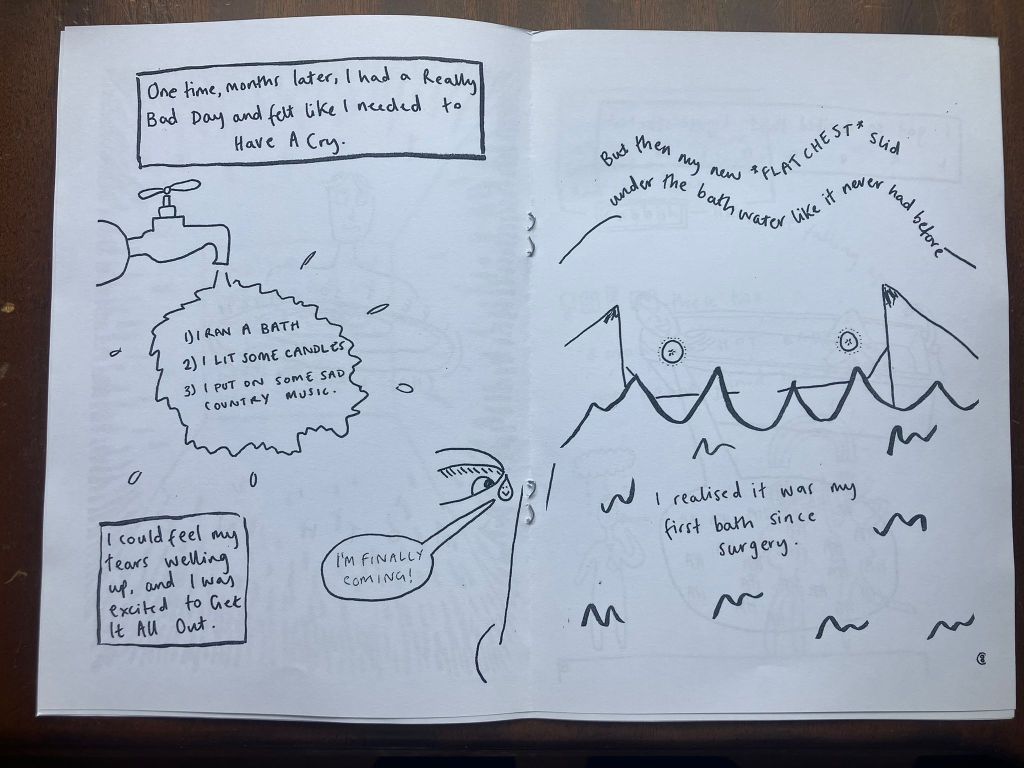 One time, months later, I had a Really
Bad Day and felt like I needed to
Have A Cry.
1) I RAN A BATH
2) I LIT SOME CANDLES
3) I PUT ON SOME SAD
COUNTRY MUSIC.
I'M FINALLY
COMING!
I could feel my
tears welling
up, and I was
excited to Get
It All Out.
But then my new *FLAT CHEST* slid
under the bath water like it never had before
I realised it was my
first bath since
surgery.